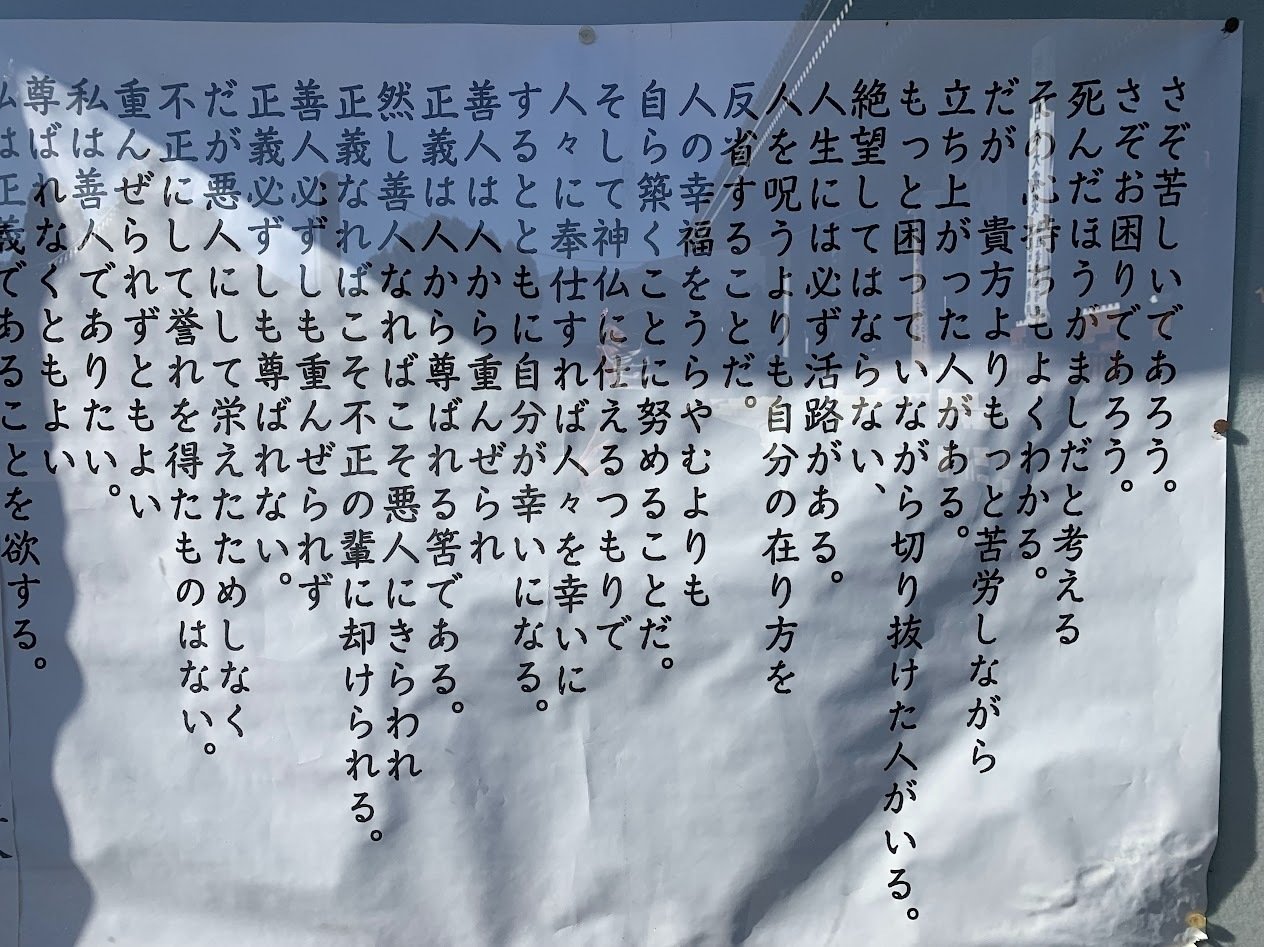 さぞ苦しいであろう。
さぞお困りであろう。
死んだほうがましだと考える
その心持ちもよくわかる。
だが　貴方よりもっと苦労しながら
立ち上がった人がある。
もっと困っていながら切り抜けた人がいる。
絶望してはならない、
人生には必ず活路がある。
人を呪うよりも自分の在り方を
反省することだ。
人の幸福をうらやむよりも
自ら築くことに努めることだ。
そして神仏に仕えるつもりで
人々に奉仕すれば人々を幸いに
するとともに自分が幸いになる。
善人は人から重んぜられ
正義は人から尊ばれる筈である。
然し善人なればこそ悪人にきらわれ
正義なればこそ不正の輩に却けられる。
善人必ずしも重んぜられず
正義必ずしも尊ばれない。
だが悪人にして栄えたためしなく
不正にして誉れを得たものはない。
重んぜられずともよい
私は善人でありたい。
尊ばれなくともよい
私は正義であることを欲する。